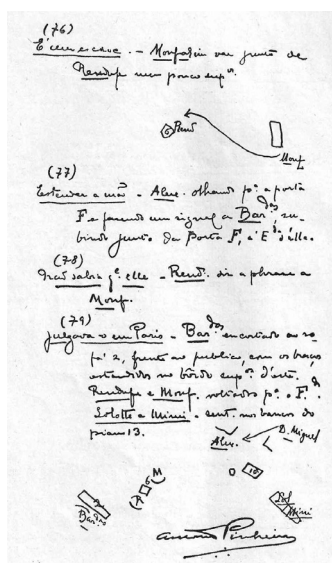 (76)
É um escave. - Monfalim vae junto de
Rendufe um pouco sup.or
6 Rend
Monf
(77)
Estender a mão - Alex. olhando p.a a porta
F e fazendo um signal a Bar.dos, su-
bindo junto da Porta F, á E.da d'ella.
(78)
Não sabia q.e elle - Rend. diz a phrase a
Monf.
(79)
Julgava-o em Paris - Bar.dos encostado ao so-
phá 2, frente ao publico, com os braços
estendidos no bôrdo sup.or d'este.
Rendufe e Monf. voltados p.a o F.do
Lolotte e Mimi - sent. nos bancos do
piano 13.
Alex. D. Miguel
M
6
R
O 10
2
Bardos
Lol
Mimi
Pinheiro